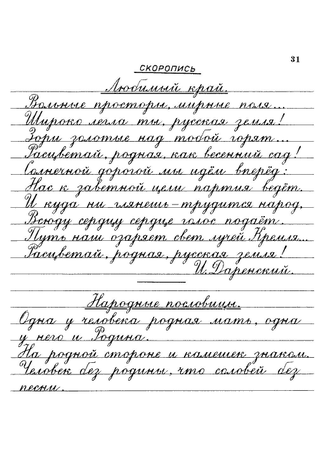 31
СКОРОПИСЬ
Любимый край.
Вольные просторы, мирные поля...
Широко легла ты, русская земля!
Зори золотые над тобой горят...
Расцветай, родная, как весенний сад!
Солнечной дорогой мы идём вперёд:
Нас к заветной цели партия ведёт.
И куда ни глянешь — трудится народ,
Всюду сердцу сердце голос подаёт.
Путь наш озаряет свет лучей Кремля...
Расцветай, родная, русская земля!
И. Даренский.
Народные пословицы.
Одна у человека родная мать, одна
у него и Родина.
На родной стороне и камешек знаком.
Человек без родины, что соловей без
песни.